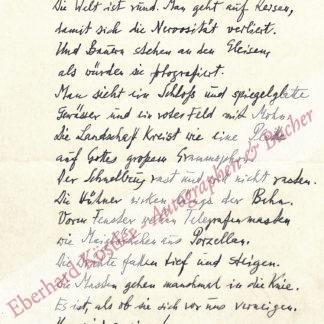 Die Welt ist rund. Man geht auf Reisen,
damit sich die Nervosität verliert.
Und Bauern stehen an den Gleisen,
als würden sie fotografiert.
Man sieht ein Schloß und spiegelglatte
Gewässer und ein rotes Feld mit Mohn.
Die Landschaft kreist wie eine Platte
auf Gottes großem Grammophon.
Der Schnellzug rast und will nicht rasten.
Die Hühner der Bahn.
Vorm Fenster Telegrafenmasten
wie Maiglöckchen aus Porzellan.
Die Drähte fallen tief und steigen.
Die Masten gehen manchmal in die Knie.
Es ist, als ob sie sich vor uns verneigen.
Eberhard Köstler Autographen & Bücher